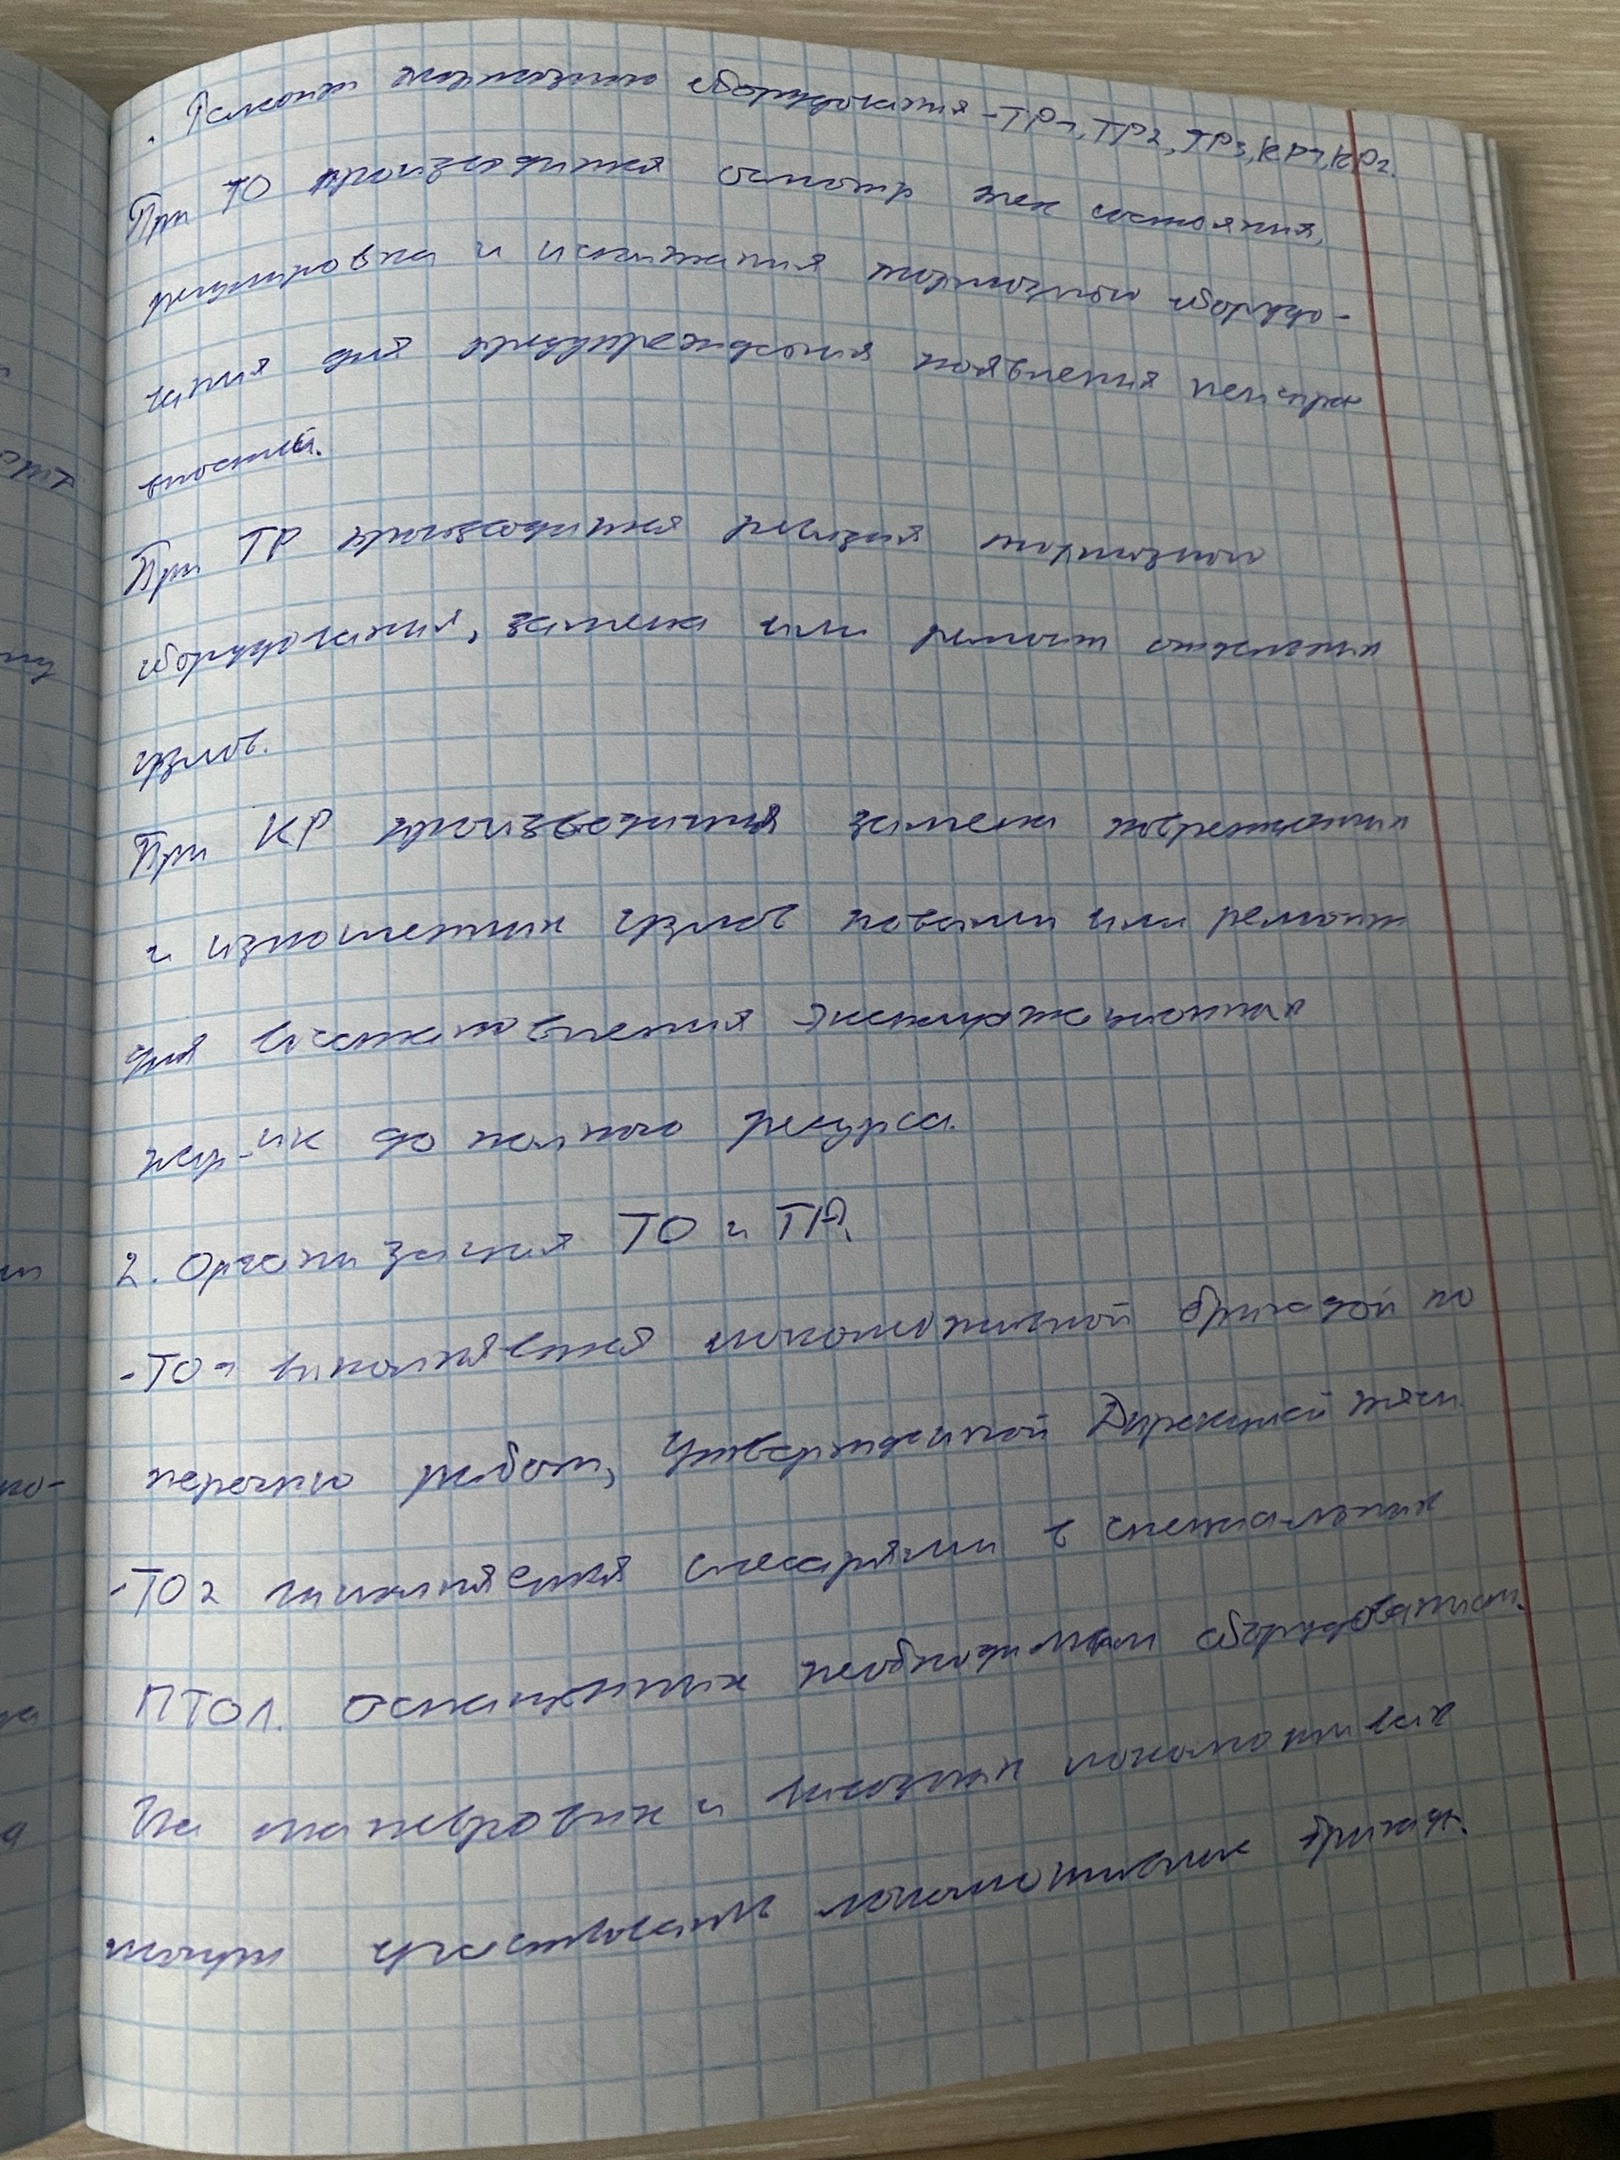 . Ремонт тормозного оборудования - ТР1, ТР2, ТР3, КР1, КР2.
При ТО производится осмотр тех состояния,
регулировка и испытания тормозного оборудо-
вания для предупреждения появления неиспра
вностей.
При ТР производится ревизия тормозного
оборудования, замена или ремонт отдельных
узлов.
При КР производится замена поврежденных
и изношенных узлов новыми или ремонт
для восстановления эксплуатационных
хар-ик до полного ресурса.
2. Организация ТО и ТР.
- ТО1 выполняется локомотивной бригадой по
перечню работ, утвержденной Дирекцией тяги
- ТО2 выполняется слесарями в специальных
ПТОЛ. оснащенных необходимым оборудованием.
На маневровых и вывозных локомотивах
могут участвовать локомотивные бригады.